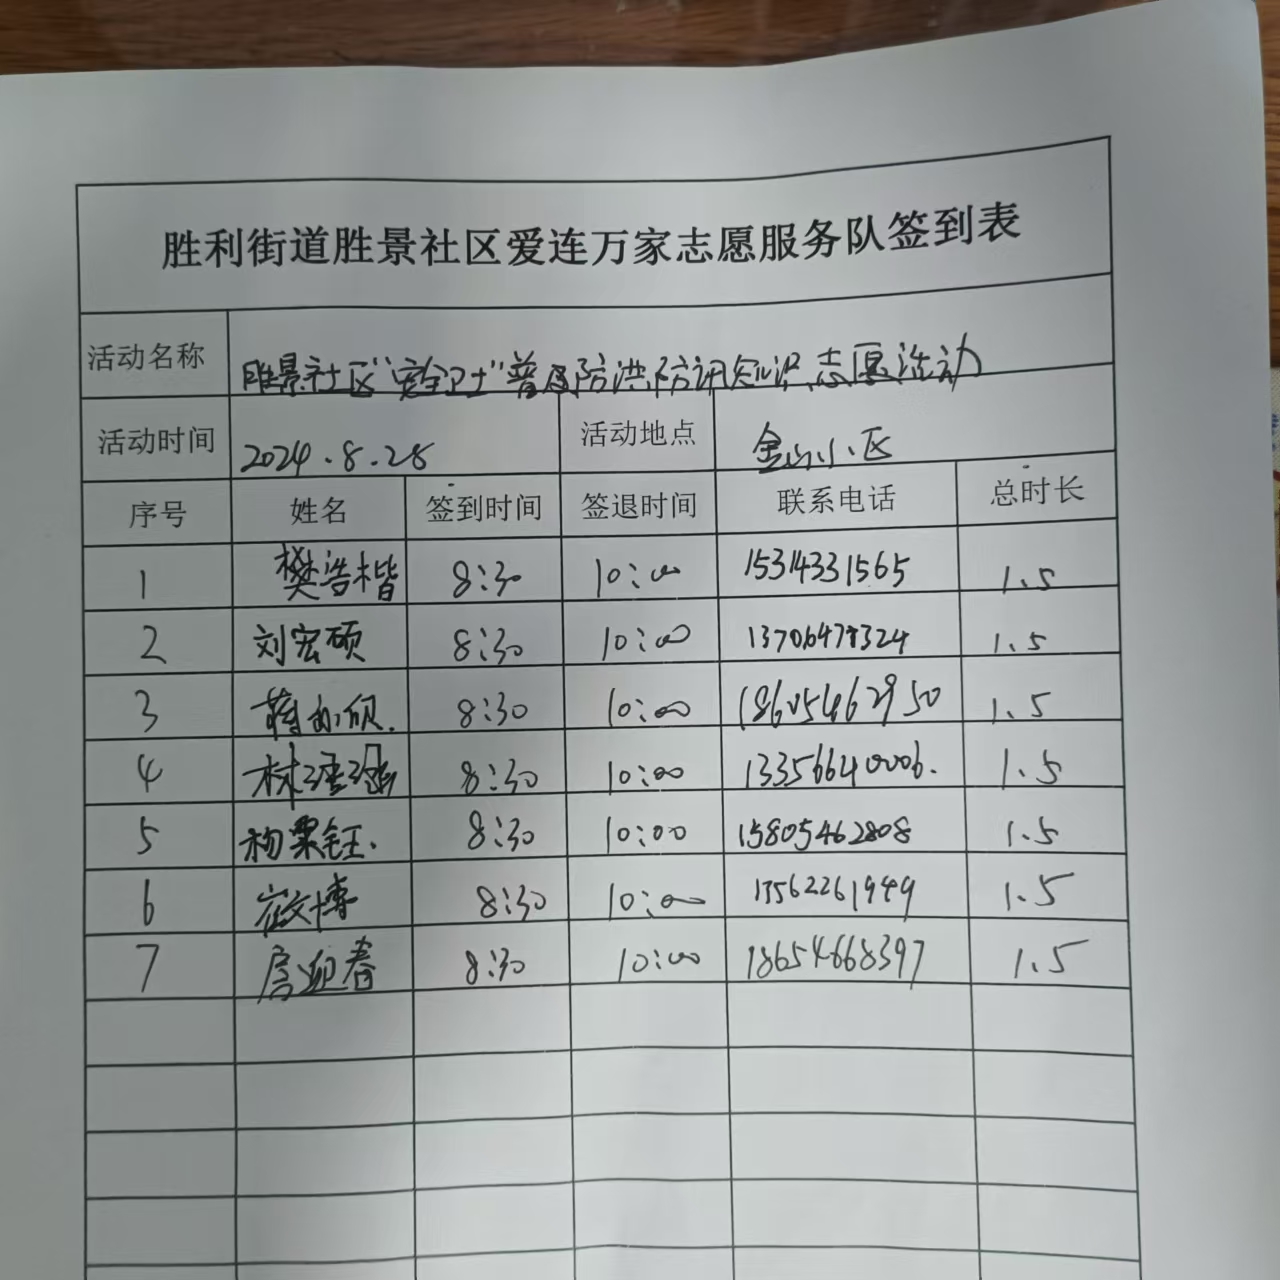 胜利街道胜景社区爱连万家志愿服务队签到表
活动名称 胜景社区“安全卫士”普及防洪防汛知识志愿活动
活动时间 2024.8.28 活动地点 金山小区
序号 姓名 签到时间 签退时间 联系电话 总时长
1 樊浩楷 8:30 10:00 15314331565 1.5
2 刘宏硕 8:30 10:00 1.5
3 8:30 10:00 18605462950 1.5
4 8:30 10:00 13356640006. 1.5
5 杨栗钰. 8:30 10:00 15805462808 1.5
6 崔文博 8:30 10:00 13562261949 1.5
7 房迎春 8:30 10:00 18654668397 1.5